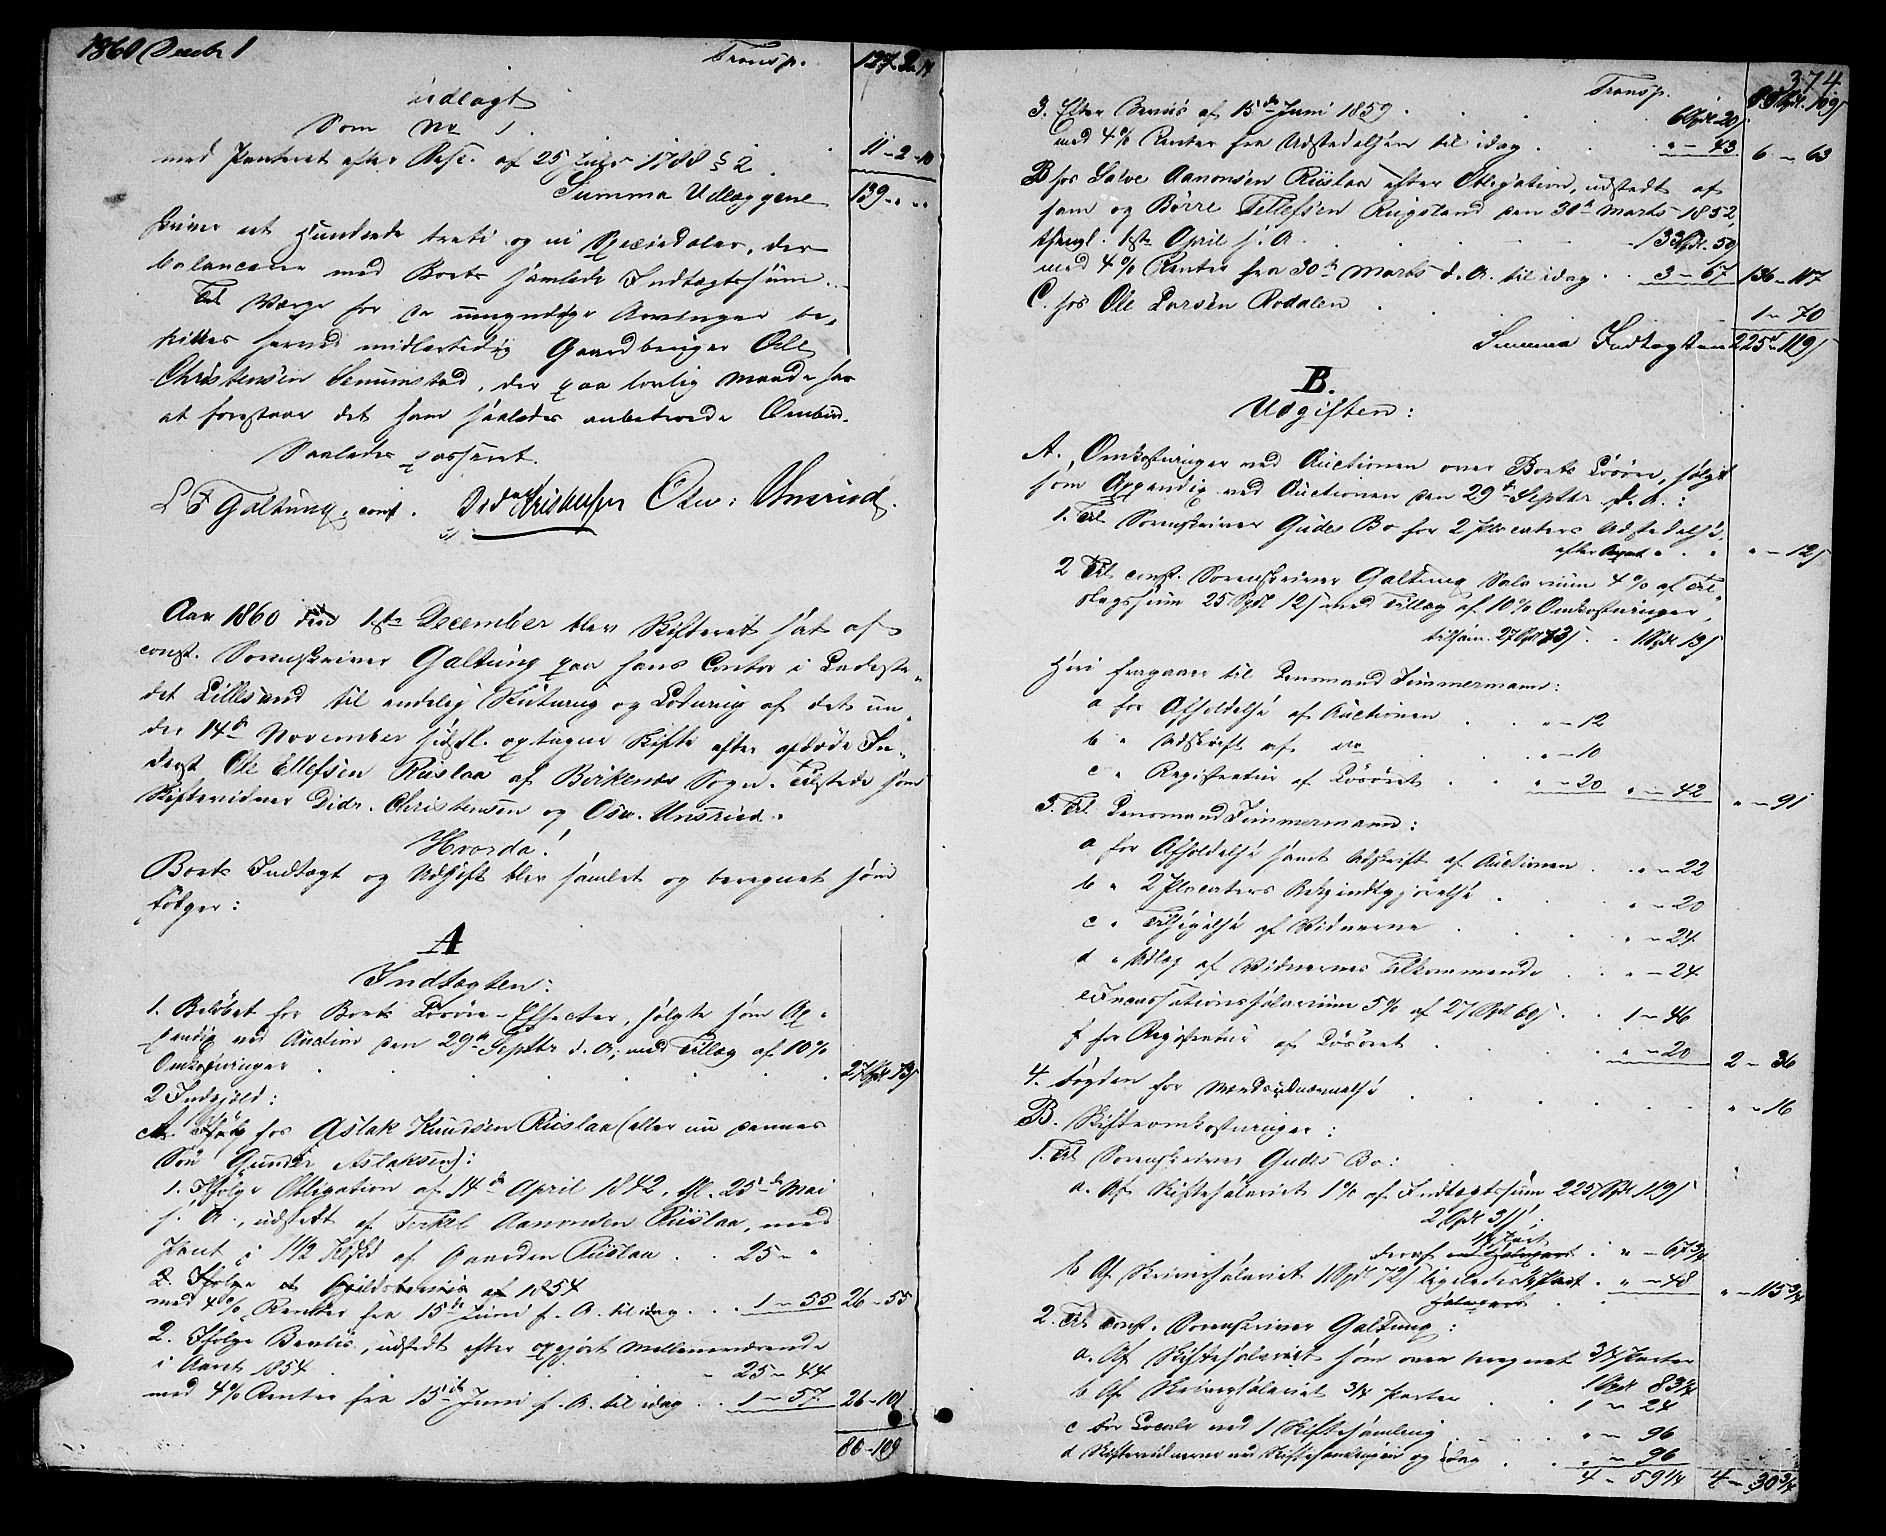 1860 Decbr 1
Transp. 127-2-14
udlagt
Som No 1.
med Panteret efter Resc. af 25 Juli 1788 § 2. 11-2-10
Summa Udlæggene 139-"-"
skriver et Hundrede treti og ni Speciedaler, der
balancerer med Boets samlede Indtægtssum.
Til Værge for de umyndige Arvinger be-
skikkes herved midlertidig Gaardbruger Ole
Christensen Senumstad, der paa lovlig Maade har
at forestaae det ham saaledes anbetroede Ombud.
Saaledes passeret.
L F Galtung, const. Didr Christensen Osw: Unsried.
Aar 1860 den 1ste December blev Skifteret sat af
const. Sorenskriver Galtung paa hans Contor i Ladeste-
det Lillesand til endelig Slutning og Lodning af det un-
der 14de November sidstl. optagne Skifte efter afdøde In-
derst Ole Ellefsen Riislaa af Birkenæs Sogn. Tilstede som
Skiftevidner Didr. Christensen og Osw. Unsried.
Hvorda!
Boets Indtægt og Udgift blev samlet og beregnet som
følger:
A
Indtægten:
1. Beløbet for Boets Løsøre-Effecter, solgte som Ap-
pendix ved Auction den 29de Septbr d. A., med Tillæg af 10%
Omkostninger 27 Spd 73 s
2 Indgjeld:
A. hos Aslak Knudsen Riislaa (eller nu dennes
Søn Gunder Aslaksen):
1. Ifølge Obligation af 14de April 1842, thl. 25de Mai
s. A., udstedt af Terkel Aanonsen Riislaa, med
Pant i 1 1/2 af Gaarden Riislaa 25- "
2. Ifølge et Gjeldsbeviis af 1854
med 4% Renter fra 15de Juni f. A. til idag 1-55 26-55
2. Ifølge Beviis, udstedt efter opgjort Mellemværende
i Aaret 1854 25-44
med 4% Renter fra 15de Juni f. A. til idag 1-57 26-101
80-109
374
Transp. 80 Spd. 109 s
3. Efter Beviis af 15de Juni 1859 6 Spd 20 s
med 4% Renter fra Udstedelsen til idag "-43 6-63
B hos Salve Aanonsen Riislaa efter Obligation, udstedt af
ham og Børre Tellefsen Rugsland den 30te Marts 1852,
thingl. 1ste April s. A. 133 Spd. 50
med 4% Renter fra 30te Marts d. A. til idag 3-67 136-117
C. hos Ole Larsen Rodalen 1-70
Summa Indtægten 225-119 s
B.
Udgiften:
A. Omkostninger ved Auctionen over Boets Løsøre, solgt
som Appendix ved Auctionen den 29de Septbr d. A.:
1. Til Sorenskriver Gudes Bo for 2 Placaters Udstedelse,
"-12 s
2 Til const. Sorenskriver Galtung Salarium 4% af Til-
slagssum 25 Spd 12 s med Tillæg af 10% Omkostninger,
tilsam. 27 Spd 73 s 1 Spd 13 s
Heri fragaaer til Lensmand Timmermann:
a for Afholdelse af Auctionen "-12
b " Udskrift af do "-10
c " Registratur af Løsøret "-20 "-42 "-91
3. Til Lensmand Timmermann:
a for Afholdelse samt Udskrift af Auctionen "-22
b " 2 Placaters Bekjendtgjørelse "-20
c " Tilsigelse af Vidnerne "-24
d " Udlæg af Vidnernes Tilkommende "-24
e Incassationssalarium 5% af 27 Spd 69 s 1-46
f for Registratur af Løsøret "-20 2-36
4. Fogden for Mandsudnævnelse "-16
B. Skifteomkostninger:
1. Til Sorenskriver Gudes Bo:
a. Af Skiftesalariet 1% af Indtægtssum 225 Spd 119 s
2 Spd 31 s
1/4 Part
deraf ved Halvpart "-67 3/4
b Af Skriversalariet 1 Spd 72 s ligeledes 1/4 Part "-48 "-115 3/4
Halvpart
2. Til const. Sorenskriver Galtung:
a. Af Skiftesalariet som oven beregnet 3/4 Parter
1 Spd 83 1/4
b Af Skriversalariet 3/4 Parter 1-24
c For Locale ved 1 Skiftesamling "-96
d Skiftevidnerne ved Skiftesamlingen og idag "-96
4-59 1/4 4-30 3/4